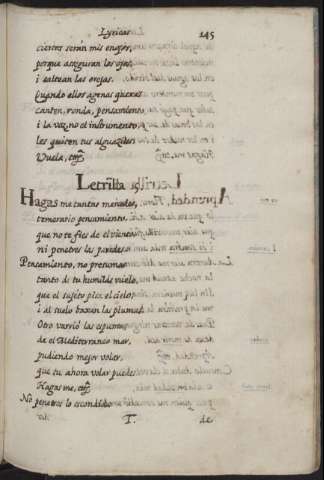 Lyricas 145
ciertas serán mis enojos,
porque aseguran los ojos,
i saltean las orejas.
Quando ellos agenas quexas
canten, ronda, pensamiento,
i la voz, no el instrumento,
les quiten tus alguaziles.
Vuela, etc̃.
Letrilla
Hagas me tantas mercedes,
temerario pensamiento,
que no te fies de el viento,
ni penetres las paredes.
Pensamiento, no presumas
tanto de tu humilde vuelo,
que el sujeto pisa el cielo,
i al suelo baxan las plumas.
Otro barrió las espumas
de el Mediterraneo mar,
pudiendo mejor volar,
que tu ahora volar puedes.
Hagas me, etc̃.
No penetres lo escondido
T. de